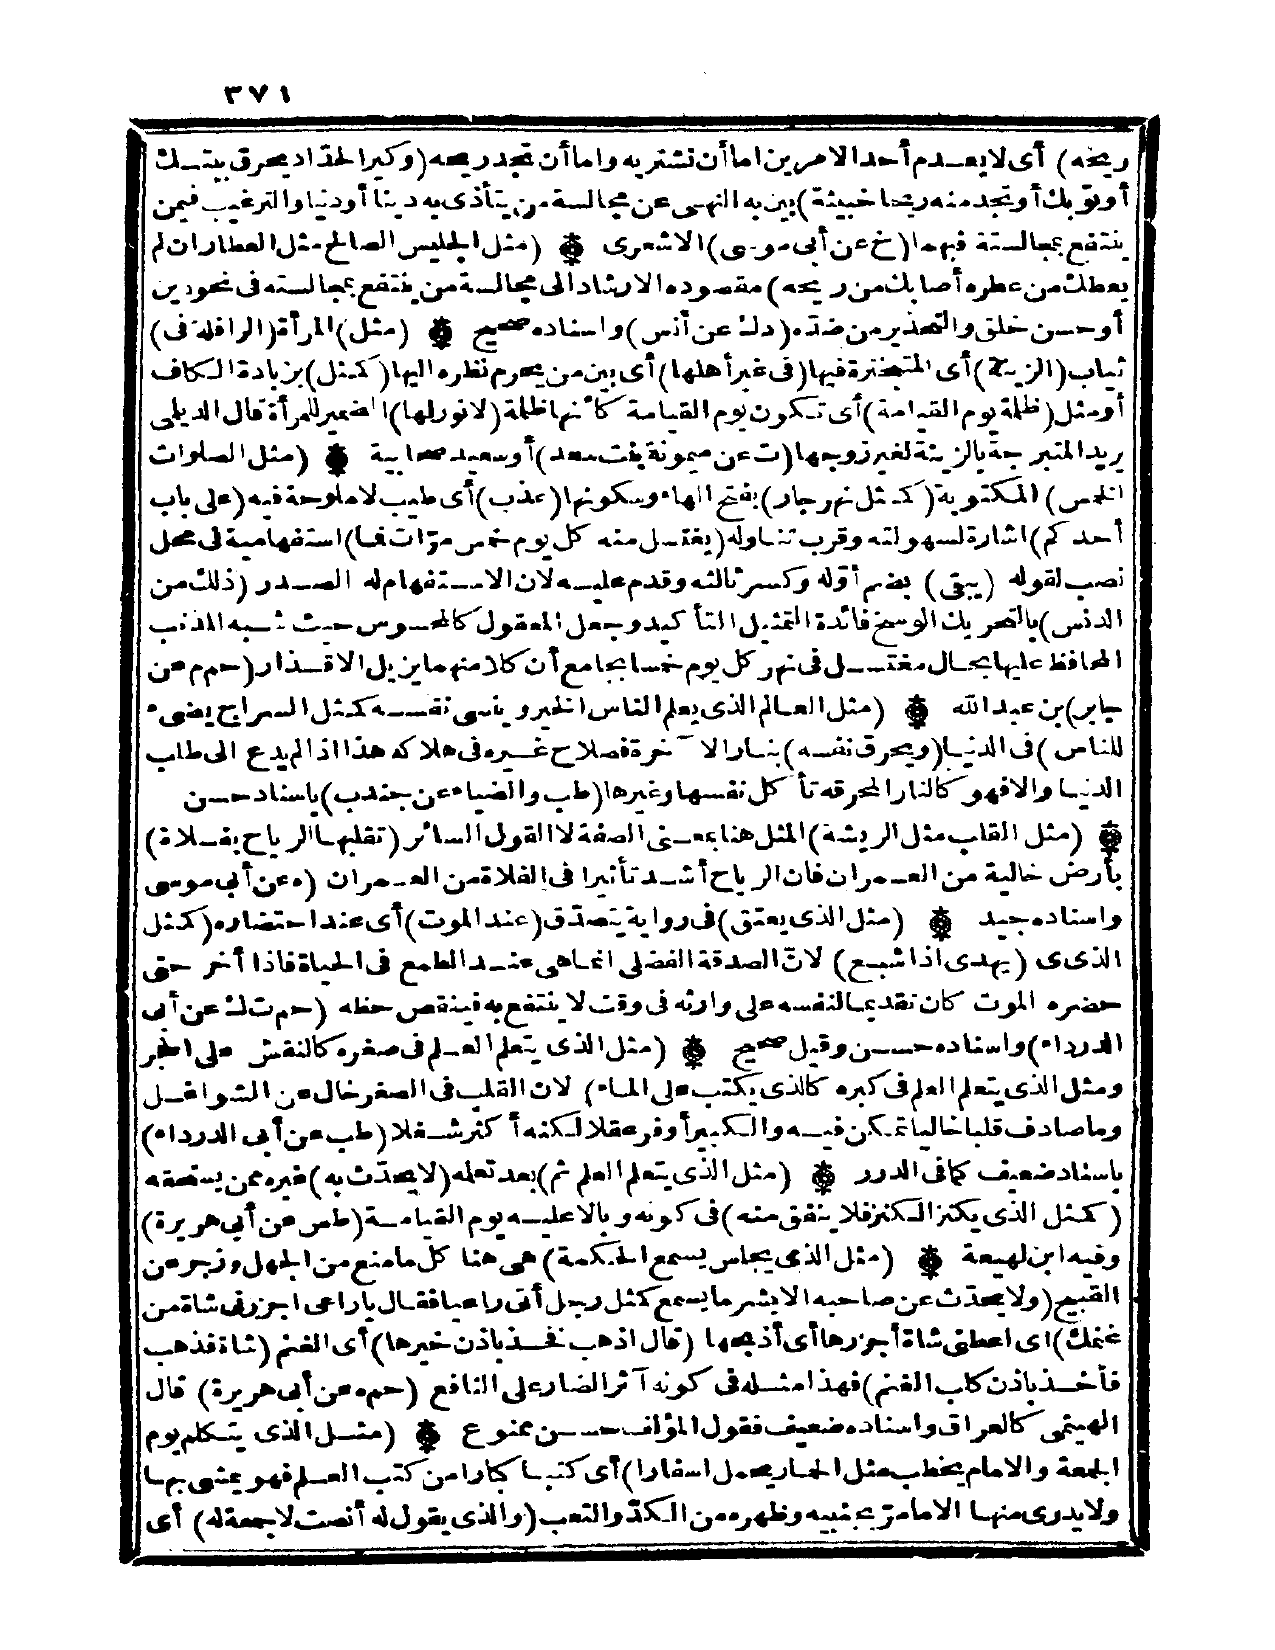 ٣٧١
ريحه) أى لا يعدم أحد الامرين اما أن تشتريه واما أن تجد ريحه (وكير الحداد يحرق بيتك
أوثوبك أو تجد منه ريحا خبيثة) بين به النهى عن مجالسة من يتأذى به دينا أو دنيا والترغيب فيمن
ينتفع بمجالسته فيهما (خ عن أبى موسى) الاشعرى ۞ (مثل الجليس الصالح مثل العطار ان لم
يعطك من عطره أصابك من ريحه) مقصوده الارشاد الى مجالسة من ينتفع بمجالسته فى نحو دين
أو حسن خلق والتحذير من ضده (د ك عن أنس) واسناده صحيح ۞ (مثل) المرأة (الرافلة فى)
ثياب (الزينة) أى المتبخترة فيها (فى غير أهلها) أى بين من يحرم نظره اليها (كمثل) بزيادة الكاف
أو مثل (ظلمة يوم القيامة) أى تكون يوم القيامة كأنها ظلمة (لا نور لها) الضمير للمرأة قال الديلمى
يريد المتبرجة بالزينة لغير زوجها (ت عن ميمونة بنت سعد) أو سعيد صحابية ۞ (مثل الصلوات
الخمس) المكتوبة (كمثل نهر جار) بفتح الهاء وسكونها (عذب) أى طيب لا ملوحة فيه (على باب
أحدكم) اشارة لسهولته وقرب تناوله (يغتسل منه كل يوم خمس مرّات فما) استفهامية فى محل
نصب لقوله (يبقى) بضم أوّله وكسر ثالثه وقدم عليه لان الاستفهام له الصدر (ذلك من
الدنس) بالتحريك الوسخ فائدة التمثيل التأكيد وجعل المعقول كالمحسوس حيث شبه المذنب
المحافظ عليها بحال مغتسل فى نهر كل يوم خمسا بجامع أن كلا منهما يزيل الاقذار (حم م عن
جابر) بن عبد الله ۞ (مثل العالم الذى يعلم الناس الخير وينسى نفسه كمثل السراج يضىء
للناس) فى الدنيا (ويحرق نفسه) بنار الا خرة فصلاح غيره فى هلاكه هذا اذا لم يدع الى طلب
الدنيا والا فهو كالنار المحرقة تأكل نفسها وغيرها (طب والضياء عن جندب) باسناد حسن
۞ (مثل القلب مثل الريشة) المثل هنا بمعنى الصفة لا القول السائر (تقلبها الرياح بفلاة)
بأرض خالية من العمران فان الرياح أشد تأثيرا فى الفلاة من العمران (ه عن أبى موسى
واسناده جيد ۞ (مثل الذى يعتق) فى رواية يتصدق (عند الموت) أى عند احتضاره (كمثل
الذى (يهدى اذا شبع) لانّ الصدقة الفضلى انما هى عند الطمع فى الحياة فاذا أخر حتى
حضره الموت كان تقديما لنفسه على وارثه فى وقت لا ينتفع به فينقص حظه (حم ت ك عن أبى
الدرداء) واسناده حسن وقيل صحيح ۞ (مثل الذى يتعلم العلم فى صغره كالنقش على الحجر
ومثل الذى يتعلم العلم فى كبره كالذى يكتب على الماء) لان القلب فى الصغر خال عن الشواغل
وما صادف قلبا خاليا تمكن فيه والكبير أوفر عقلا لكنه أكثر شغلا (طب عن أبى الدرداء)
باسناد ضعيف كما فى الدرر ۞ (مثل الذى يتعلم العلم ثم) بعد تعلمه (لا يحدّث به) غيره ممن يستحقه
(كمثل الذى يكنز الكنز فلا ينفق منه) فى كونه وبالا عليه يوم القيامة (طس عن أبى هريرة)
وفيه ابن لهيعة ۞ (مثل الذى يجلس يسمع الحكمة) هى هنا كل ما منع من الجهل وزجر عن
القبيح (ولا يحدّث عن صاحبه الا بشر ما يسمع كمثل رجل أتى راعيا فقال ياراعى اجزرنى شاة من
غنمك) اى اعطنى شاة أجزرها أى أذبحها (قال اذهب فخذ باذن خيرها) أى الغنم (شاة فذهب
فأخذ باذن كلب الغنم) فهذا مثله فى كونه آثر الضار على النافع (حم ه عن أبى هريرة) قال
الهيتمى كالعراقى واسناده ضعيف فقول المؤلف حسن ممنوع ۞ (مثل الذى يتكلم يوم
الجمعة والامام يخطب مثل الحمار يحمل اسفارا) أى كتبا كبارا من كتب العلم فهو يمشى بها
ولا يدرى منها الا ما مرّ بجنبيه وظهره من الكدّ والتعب (والذى يقول له أنصت لا جمعة له) أى